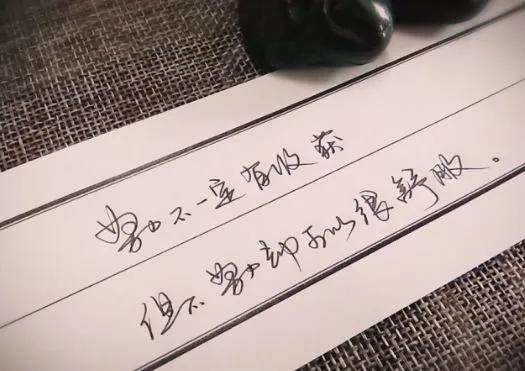 努力不一定有收获
但不努力却可以很舒服。